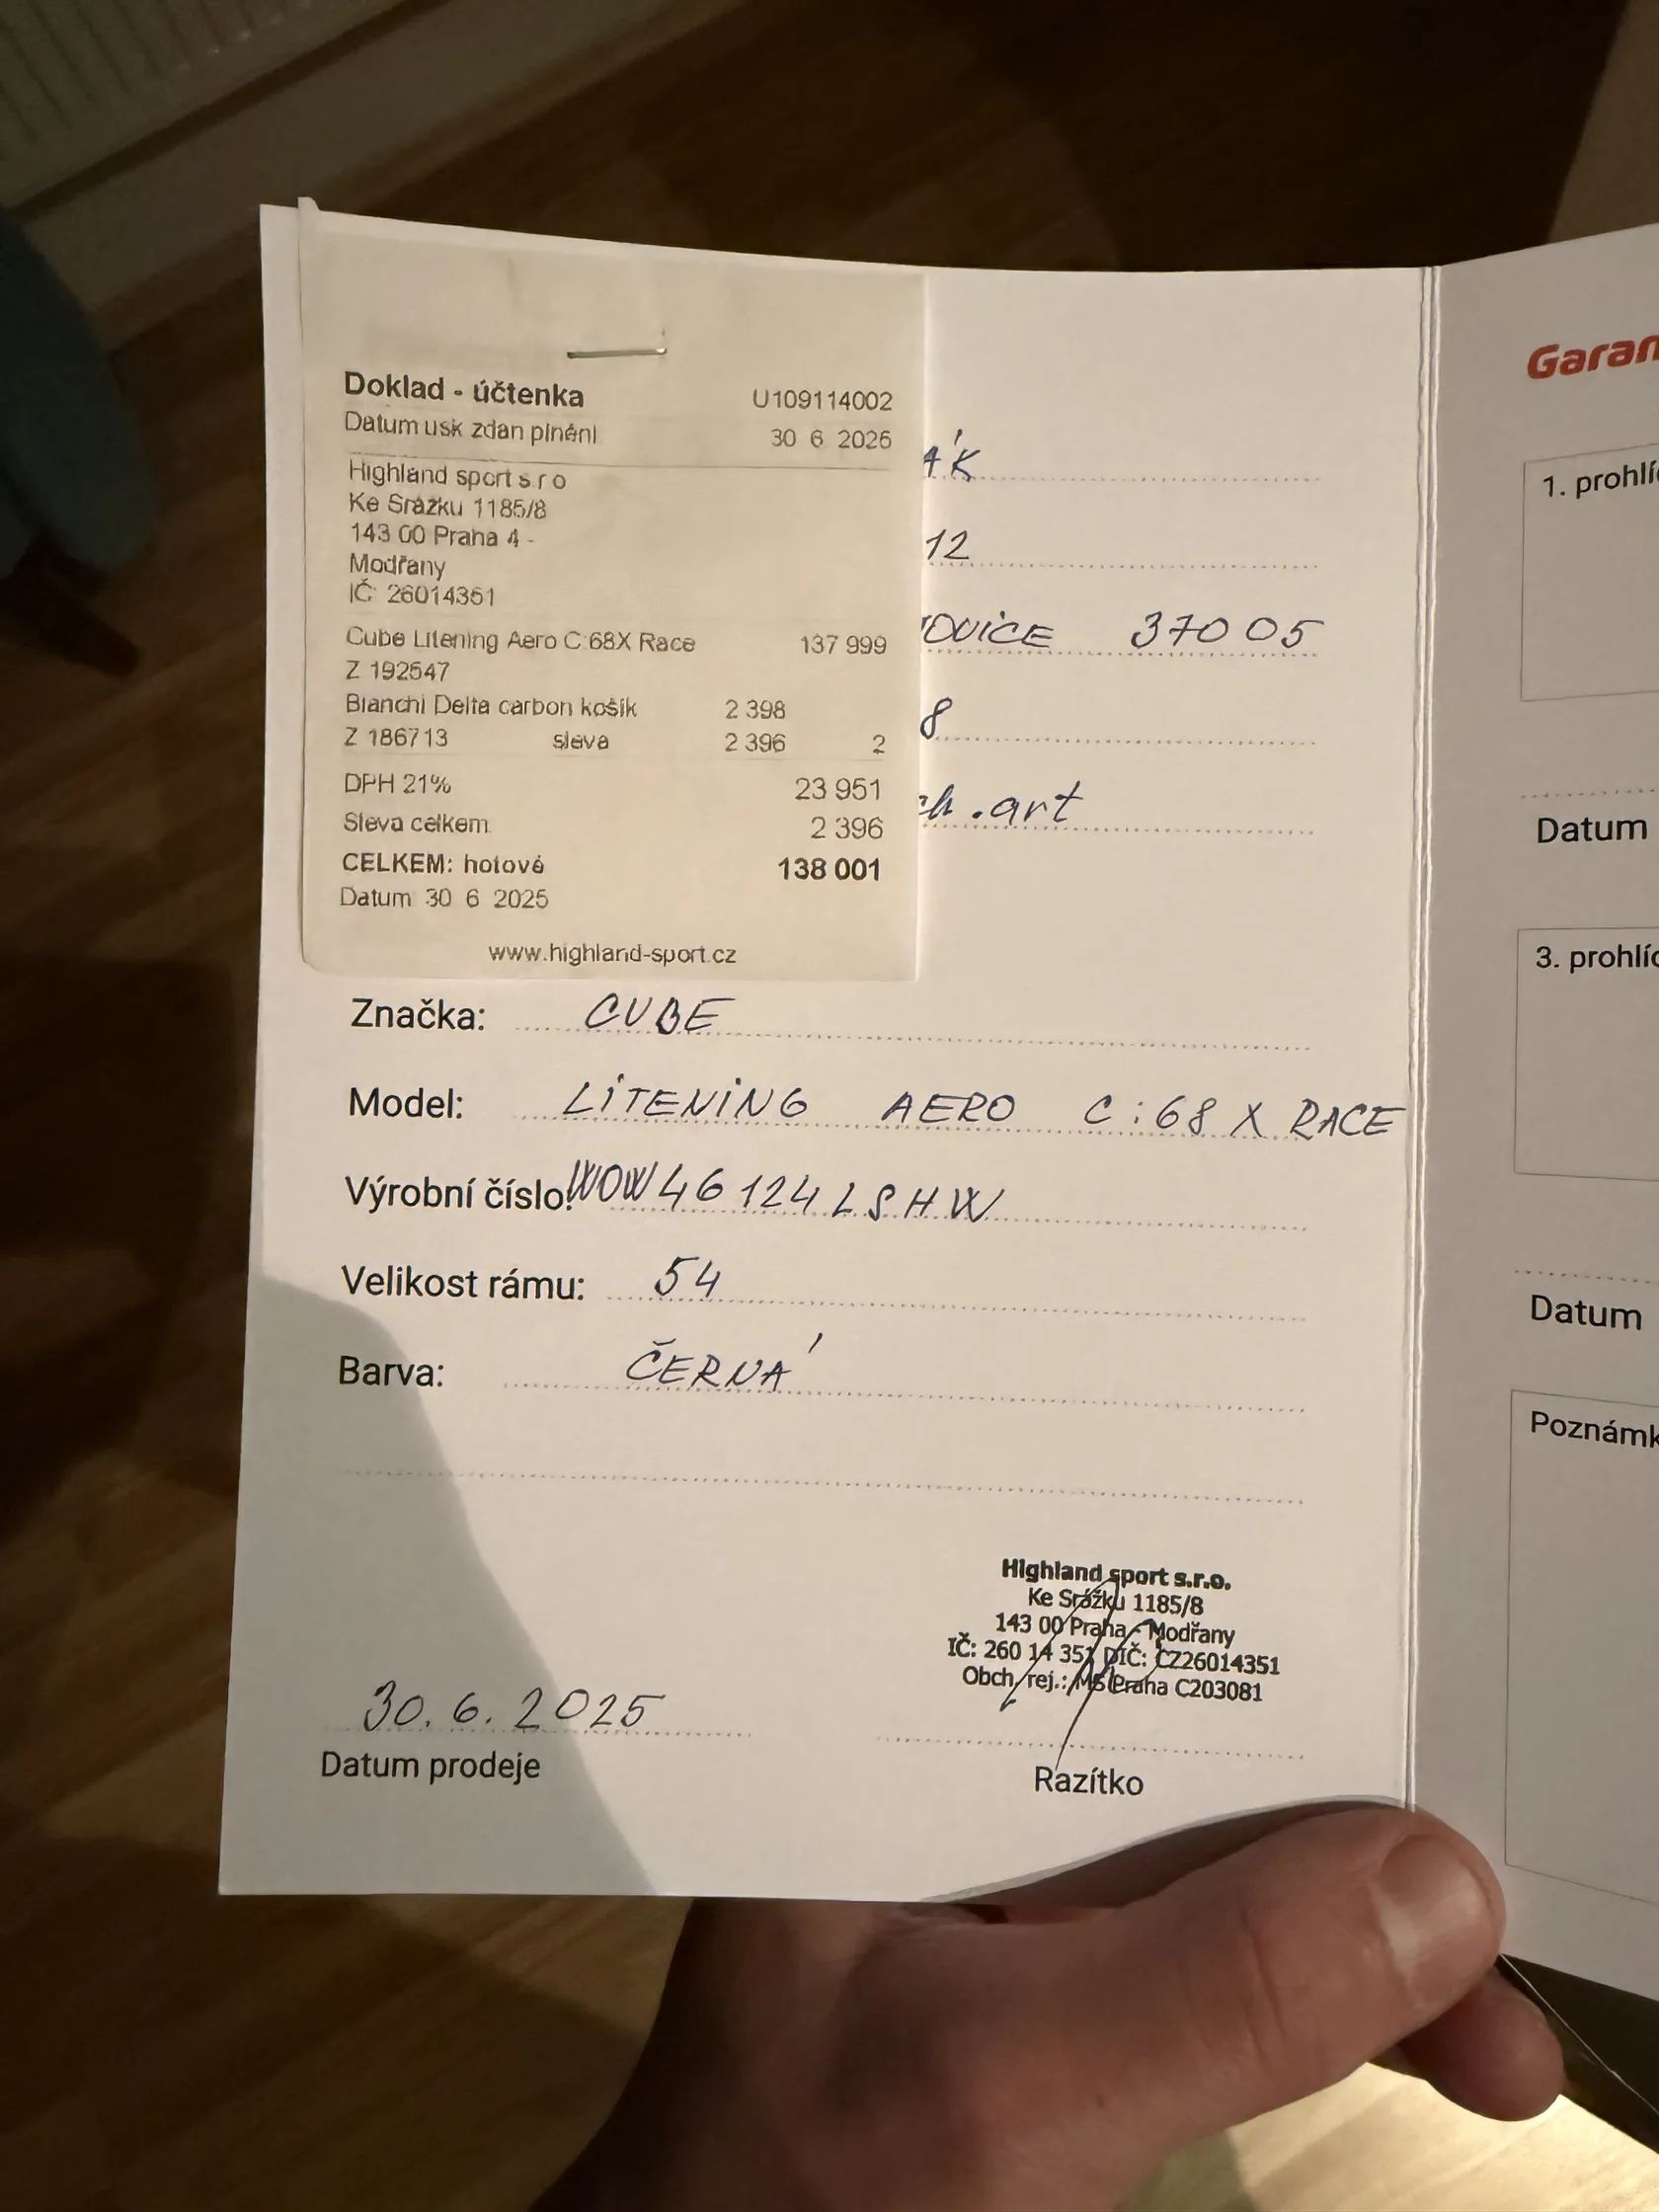 Doklad - účtenka U109114002
Datum usk zdan plnění 30 6 2025
Highland sport s r o
Ke Srážku 1185/8
143 00 Praha 4 -
Modřany
IČ: 26014351
Cube Litening Aero C:68X Race 137 999
Z 192547
Bianchi Delta carbon košík 2 398
Z 186713 sleva 2 396 2
DPH 21% 23 951
Sleva celkem 2 396
CELKEM: hotově 138 001
Datum 30 6 2025
www.highland-sport.cz
ÁK
12
OVICE 370 05
8
ch.art
Značka: CUBE
Model: LITENING AERO C:68 X RACE
Výrobní číslo: WOW46124LSHW
Velikost rámu: 54
Barva: ČERNÁ
Highland sport s.r.o.
Ke Srážku 1185/8
143 00 Praha - Modřany
IČ: 260 14 351 DIČ: CZ26014351
Obch. rej.: MS Praha C203081
30. 6. 2025
Datum prodeje
Razítko
Garan
1. prohlíd
Datum
3. prohlíd
Datum
Poznámk